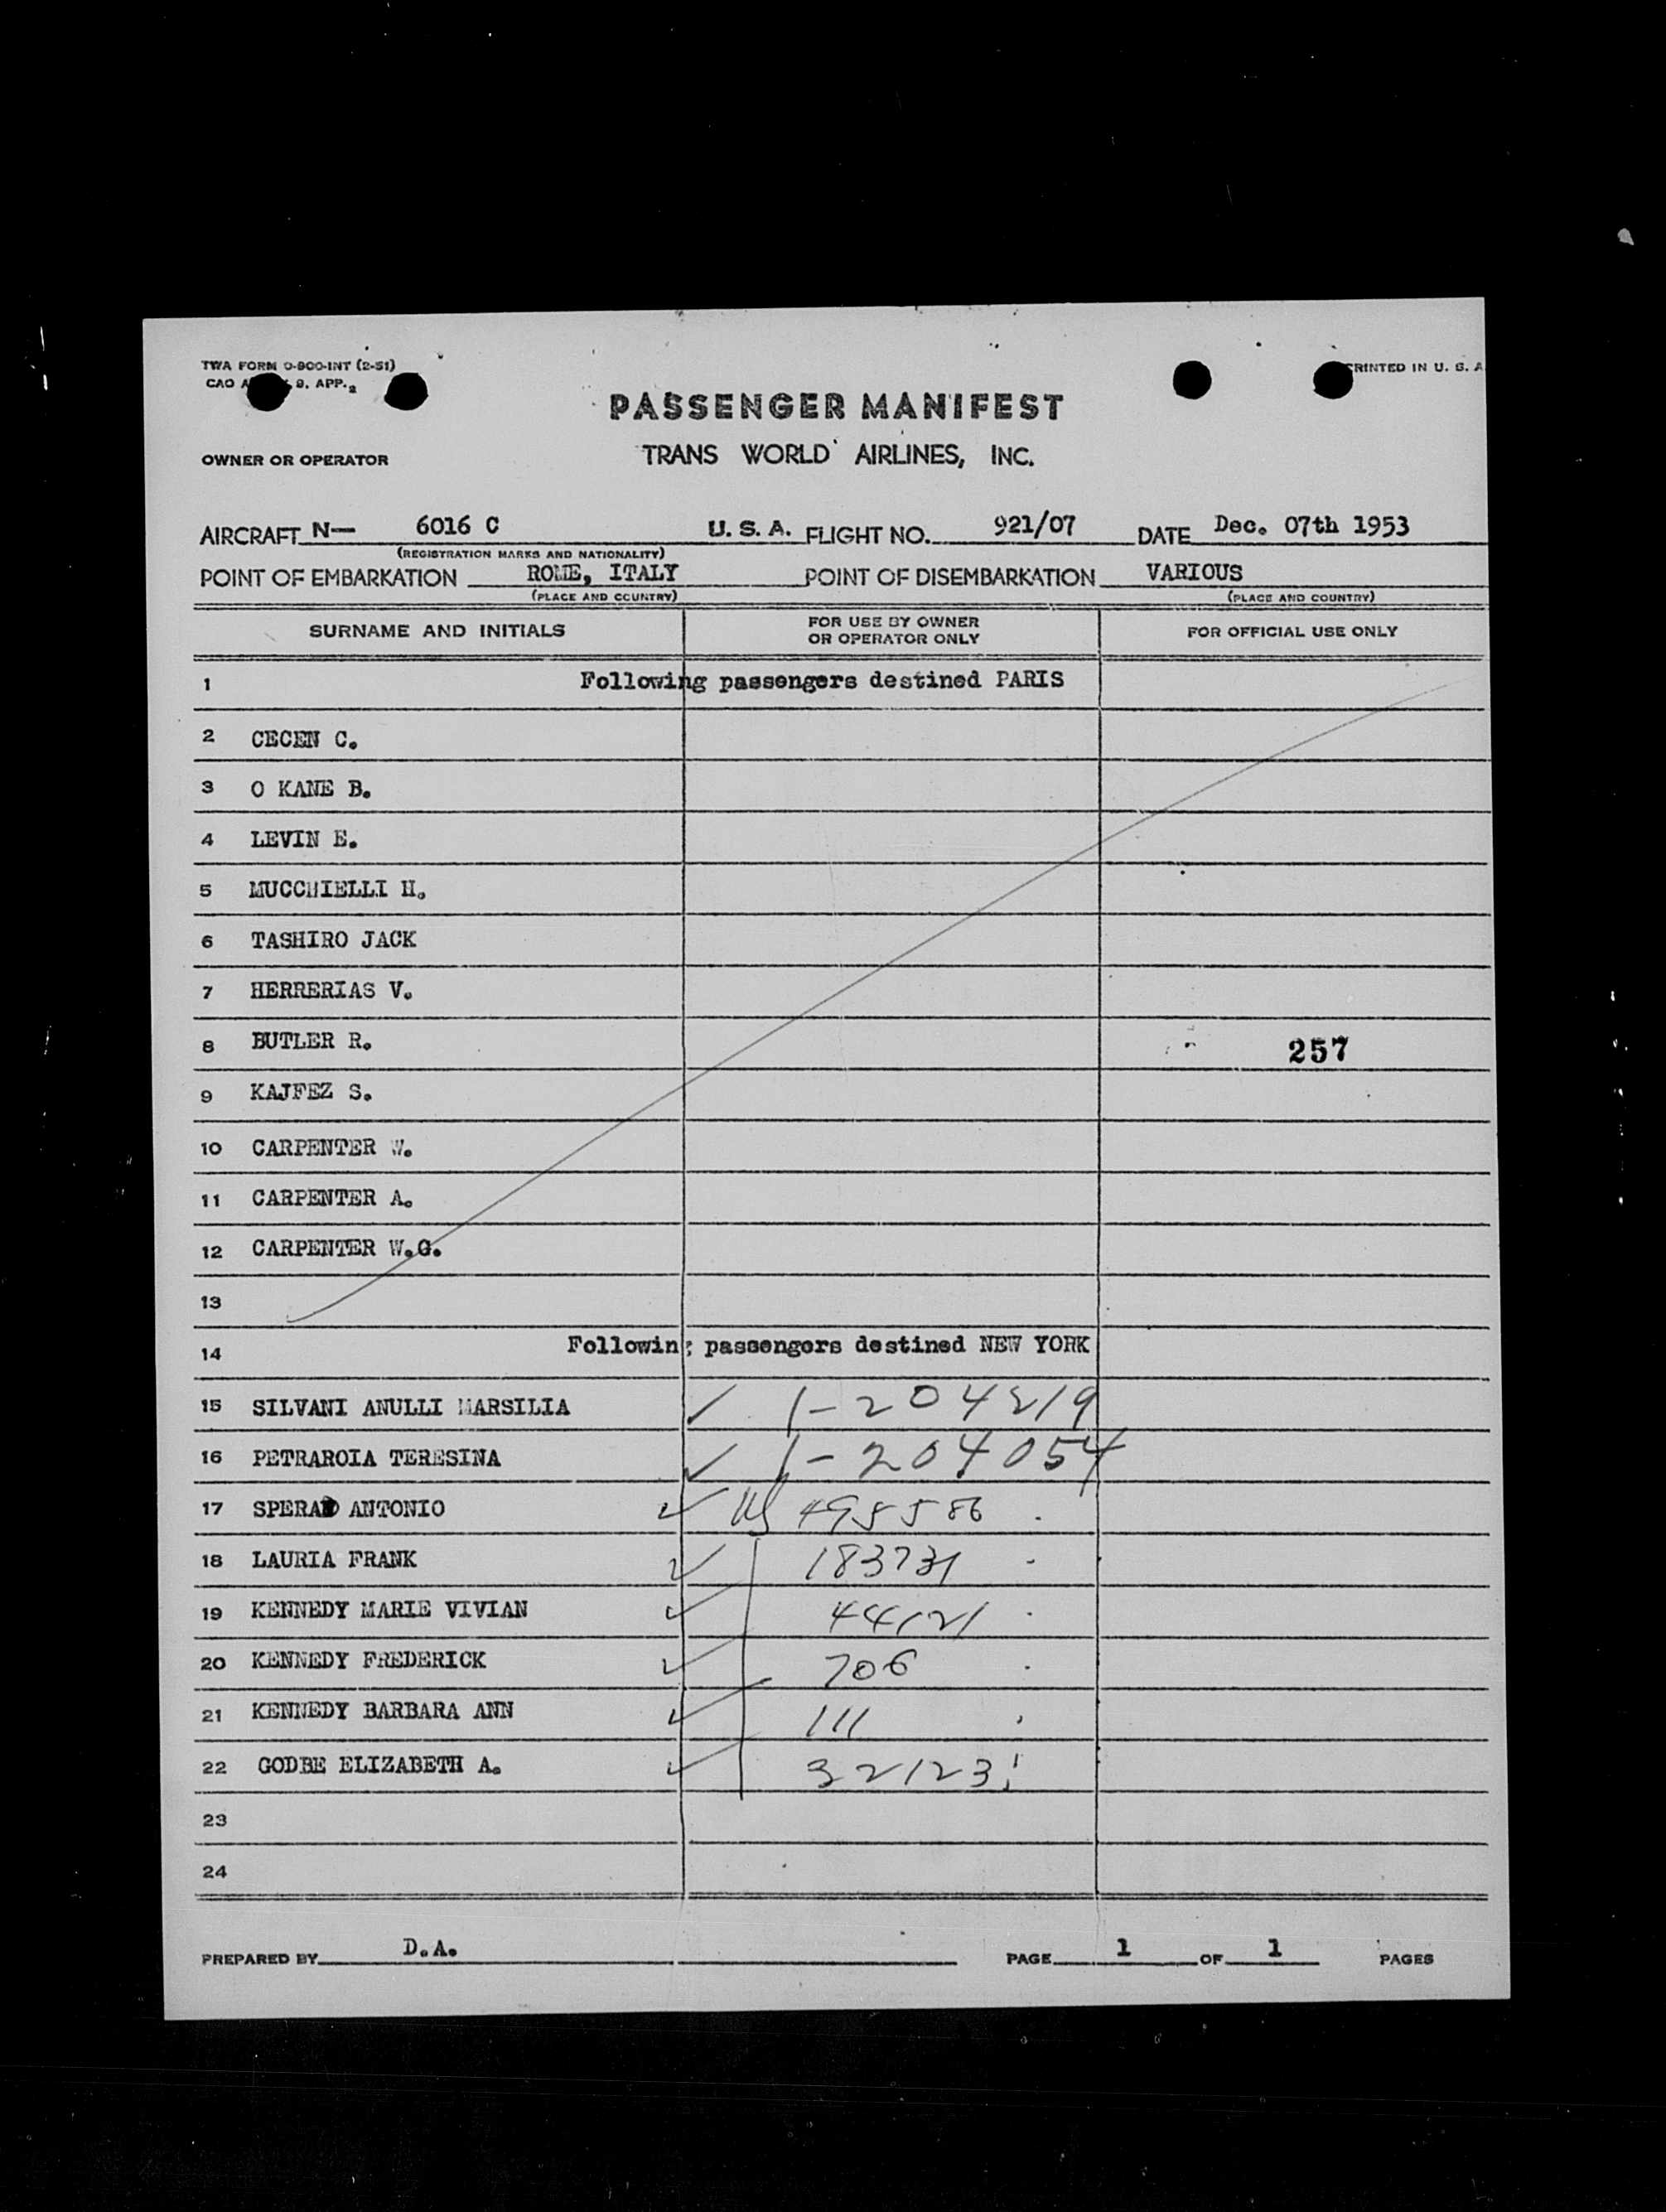 TWA FORM O-800-INT (2-51)
PRINTED IN U. S. A
CAO 9. APP. 2
PASSENGER MANIFEST
OWNER OR OPERATOR
TRANS WORLD AIRLINES, INC.
AIRCRAFT N— 6016 C U. S. A. FLIGHT NO. 921/07 DATE Dec. 07th 1953
(REGISTRATION MARKS AND NATIONALITY)
POINT OF EMBARKATION ROME, ITALY POINT OF DISEMBARKATION VARIOUS
(PLACE AND COUNTRY) (PLACE AND COUNTRY)
SURNAME AND INITIALS FOR USE BY OWNER OR OPERATOR ONLY FOR OFFICIAL USE ONLY
1 Following passengers destined PARIS
2 CECEN C.
3 O KANE B.
4 LEVIN E.
5 MUCCHIELLI H.
6 TASHIRO JACK
7 HERRERIAS V.
8 BUTLER R. 257
9 KAJFEZ S.
10 CARPENTER W.
11 CARPENTER A.
12 CARPENTER W.G.
13
14 Following passengers destined NEW YORK
15 SILVANI ANULLI MARSILIA ✓ 1-204219
16 PETRAROIA TERESINA ✓ 1-204054
17 SPERA ANTONIO ✓ US 495586
18 LAURIA FRANK ✓ 183731
19 KENNEDY MARIE VIVIAN ✓ 44121
20 KENNEDY FREDERICK ✓ 706
21 KENNEDY BARBARA ANN ✓ 111
22 GODBE ELIZABETH A. ✓ 32123
23
24
PREPARED BY D.A. PAGE 1 OF 1 PAGES